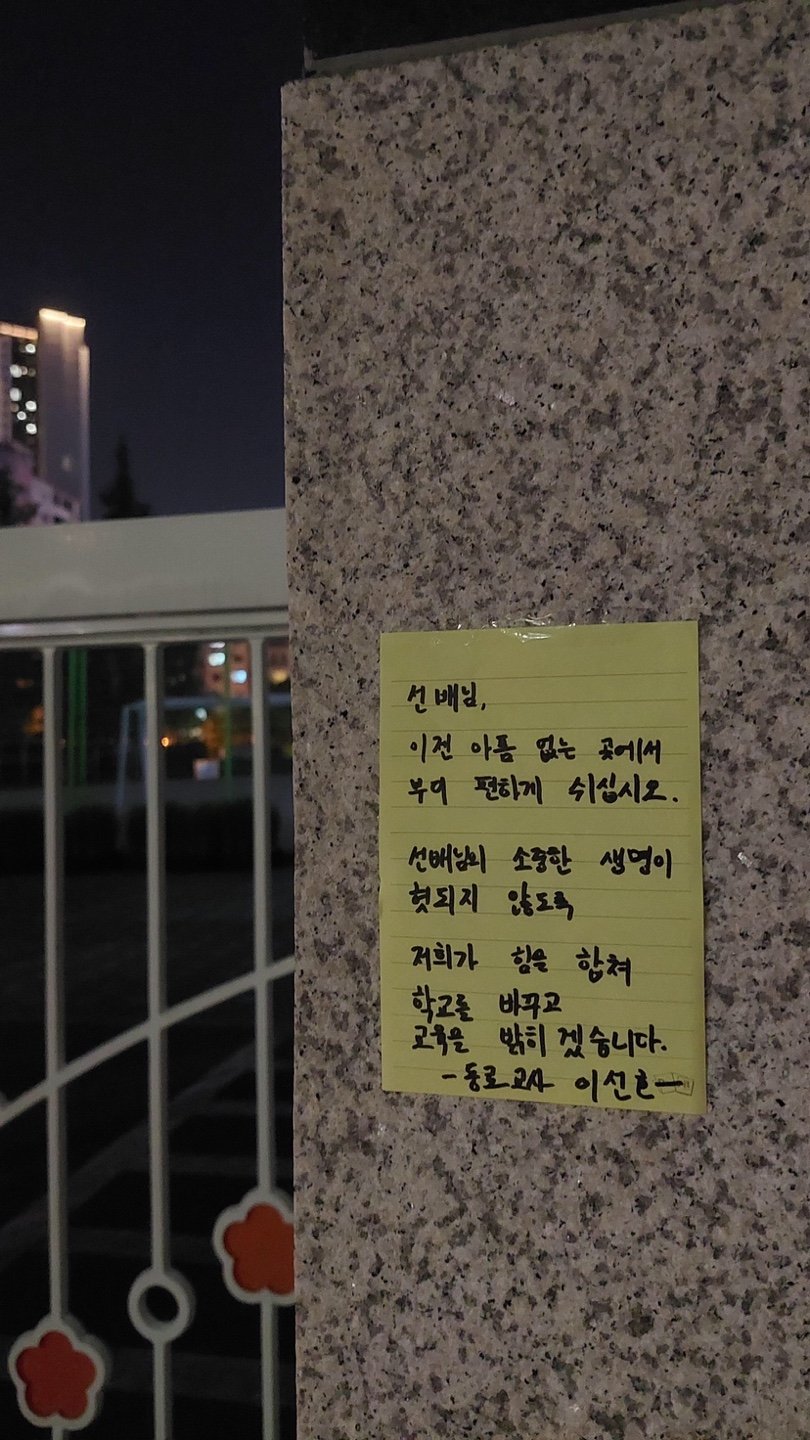 선배님,
이전 아픔 없는 곳에서
부디 편하게 쉬십시오.
선배님의 소중한 생명이
헛되지 않도록
저희가 힘을 합쳐
학교를 바꾸고
교육을 밝히겠습니다.
-동료교사 이선호-